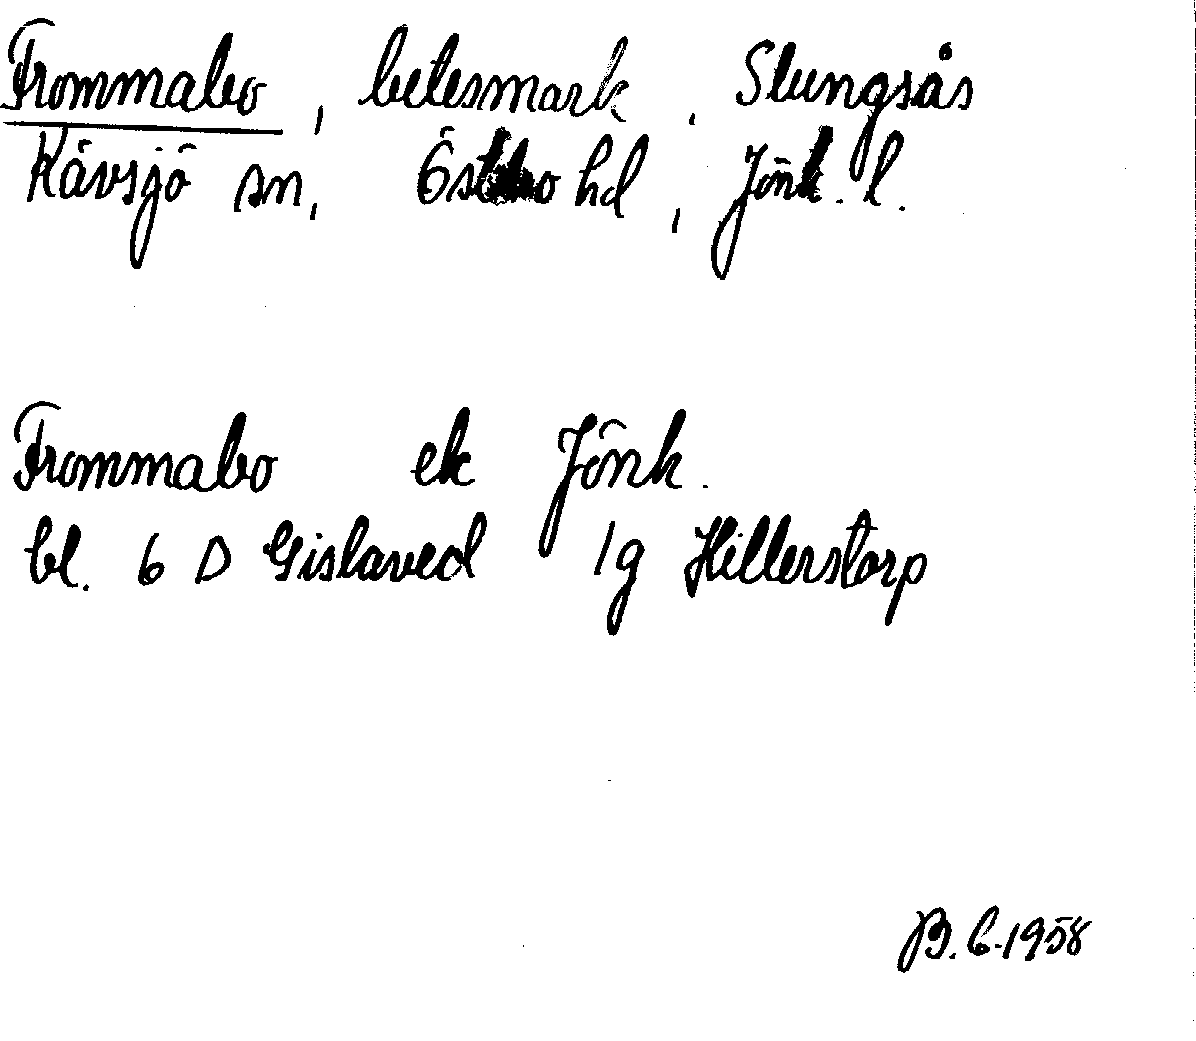 Frommabo, betesmark, Slungsås
Kävsjö sn, Östbo hd, Jönk. l.
Frommabo ek Jönk.
bl. 6 D Gislaved 1g Hillerstorp
B. L. 1958